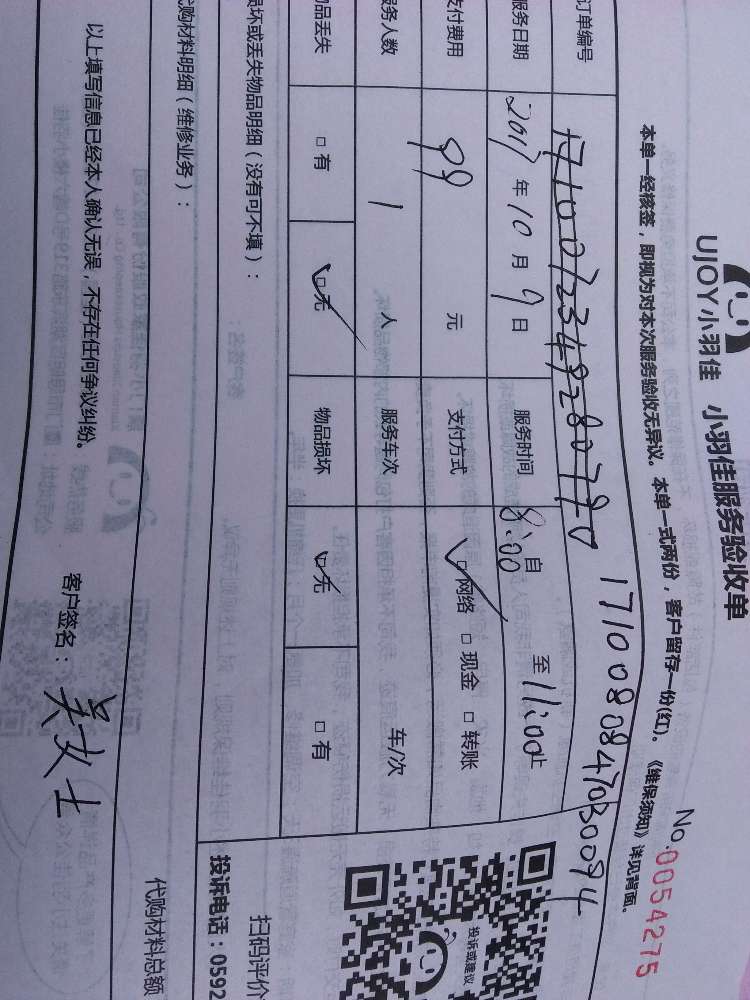 UJOY小羽佳 小羽佳服务验收单
No.0054275
本单一经核签，即视为对本次服务验收无异议。本单一式两份，客户留存一份(红)。《维保须知》详见背面。
订单编号 1710080847030094
服务日期 2017年10月9日 服务时间 自8:00至11:00止
支付费用 99元 支付方式 网络 □现金 □转账
服务人数 1人 服务车次 车/次
物品丢失 □有 □无 物品损坏 □无 □有
损坏或丢失物品明细（没有可不填）：
代购材料明细（维修业务）：
代购材料总额
以上填写信息已经本人确认无误，不存在任何争议纠纷。
客户签名：吴女士
投诉或建议
扫码评价
投诉电话：0592